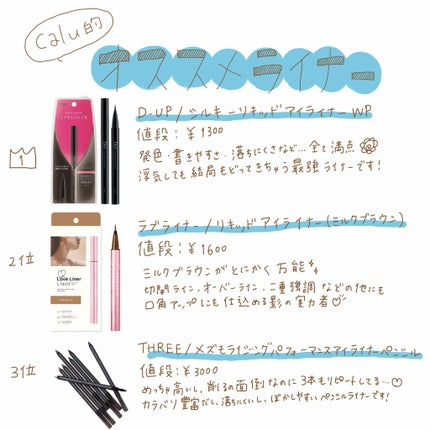 Calu的
オススメライナー
D-UP/シルキーリキッドアイライナーWP
値段:¥1300
発色・書きやすさ・落ちにくさなど…全て満点
浮気しても結局もどってきちゃう最強ライナーです!
1
2位
ラブライナー/リキッドアイライナー(ミルクブラウン)
値段:¥1600
ミルクブラウンがとにかく万能
切開ライン、オーバーライン、二重強調などの他にも
口角アップにも仕込める影の実力者♡
Love Liner
Liquid
3位
THREE/メズモライジングパフォーマンスアイライナーペンシル
値段:¥3000
めっちゃ高いし、削るの面倒なのに3本もリピートしてる…♡
カラバリ豊富だし、落ちにくいし、ぼかしやすいペンシルライナーです!